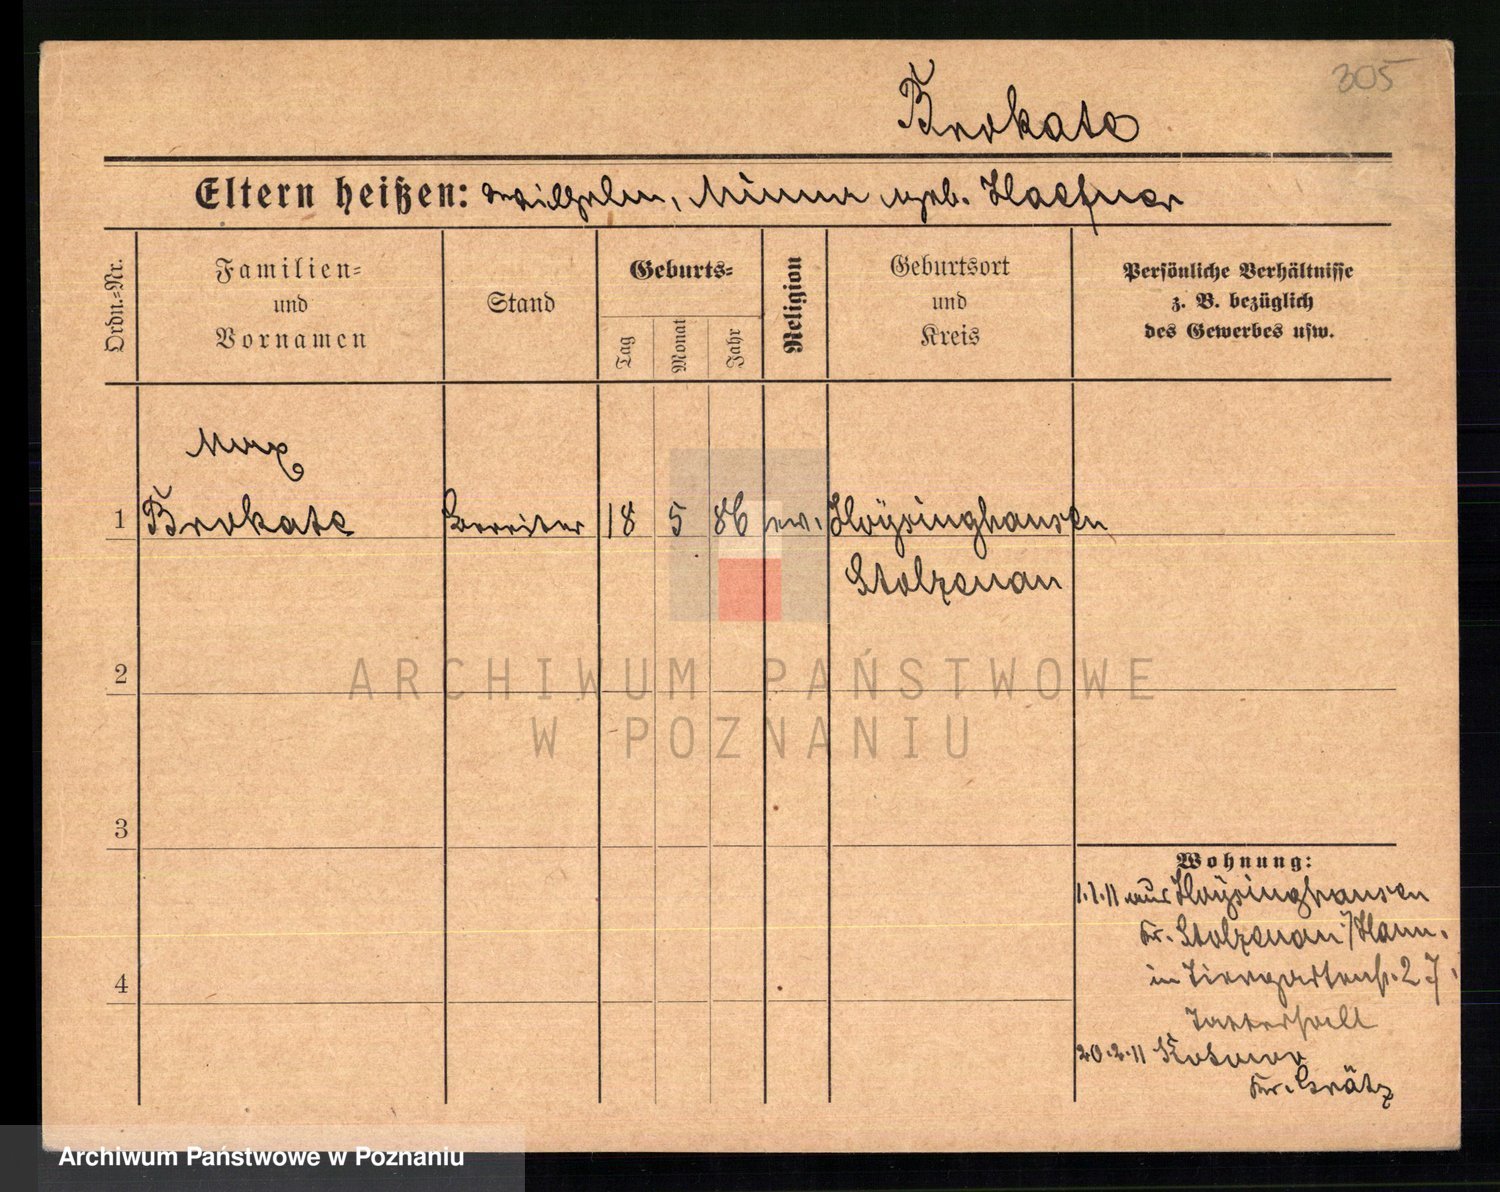 305
Brokate
Eltern heißen: Wilhelm, Minna geb. Haefner
Ordn.=Nr.
Familien=
und
Vornamen
Stand
Geburts=
Tag
Monat
Jahr
Religion
Geburtsort
und
Kreis
Persönliche Verhältnisse
z. B. bezüglich
des Gewerbes usw.
Max
1 Brokate Bereiter 18 5 86 ev. Hoÿsinghausen
Stolzenau
2
3
4
Wohnung:
1.1.11 aus Hoÿsinghausen
Kr. Stolzenau /Hann.
in Tiergartenstr. 27
Tattersall
20.2.11 Kotowo
Kr. Grätz
ARCHIWUM PAŃSTWOWE
W POZNANIU
Archiwum Państwowe w Poznaniu